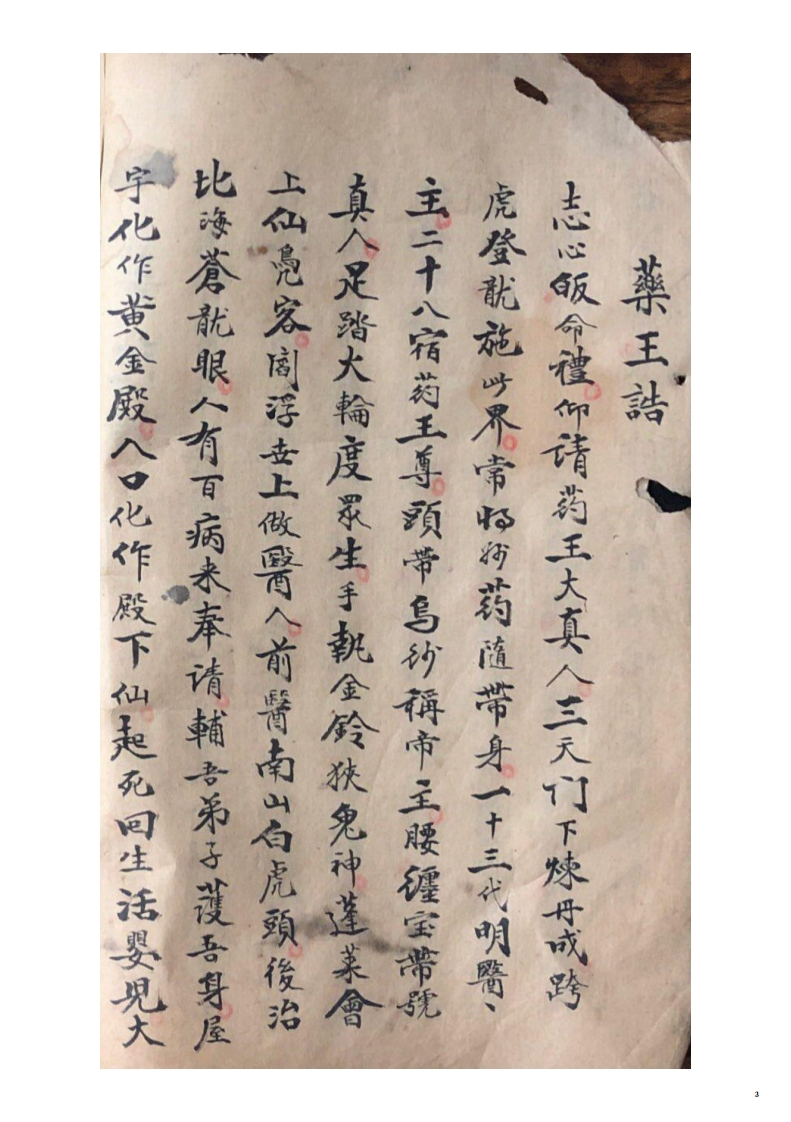 藥王誥
志心皈命禮仰请药王大真人三天门下煉丹成跨
虎登龍施此界常将妙药隨帶身一十三代明醫丶
主二十八宿药王尊頭帶烏紗稱帝主腰纏宝帶號
真人足踏大輪度眾生手執金鈴狹鬼神蓬莱會
上仙鳧客閻浮世上做醫人前醫南山白虎頭後治
比海蒼龍眼人有百病来奉请輔吾弟子護吾身屋
宇化作黄金殿人口化作殿下仙起死回生活嬰児大
3